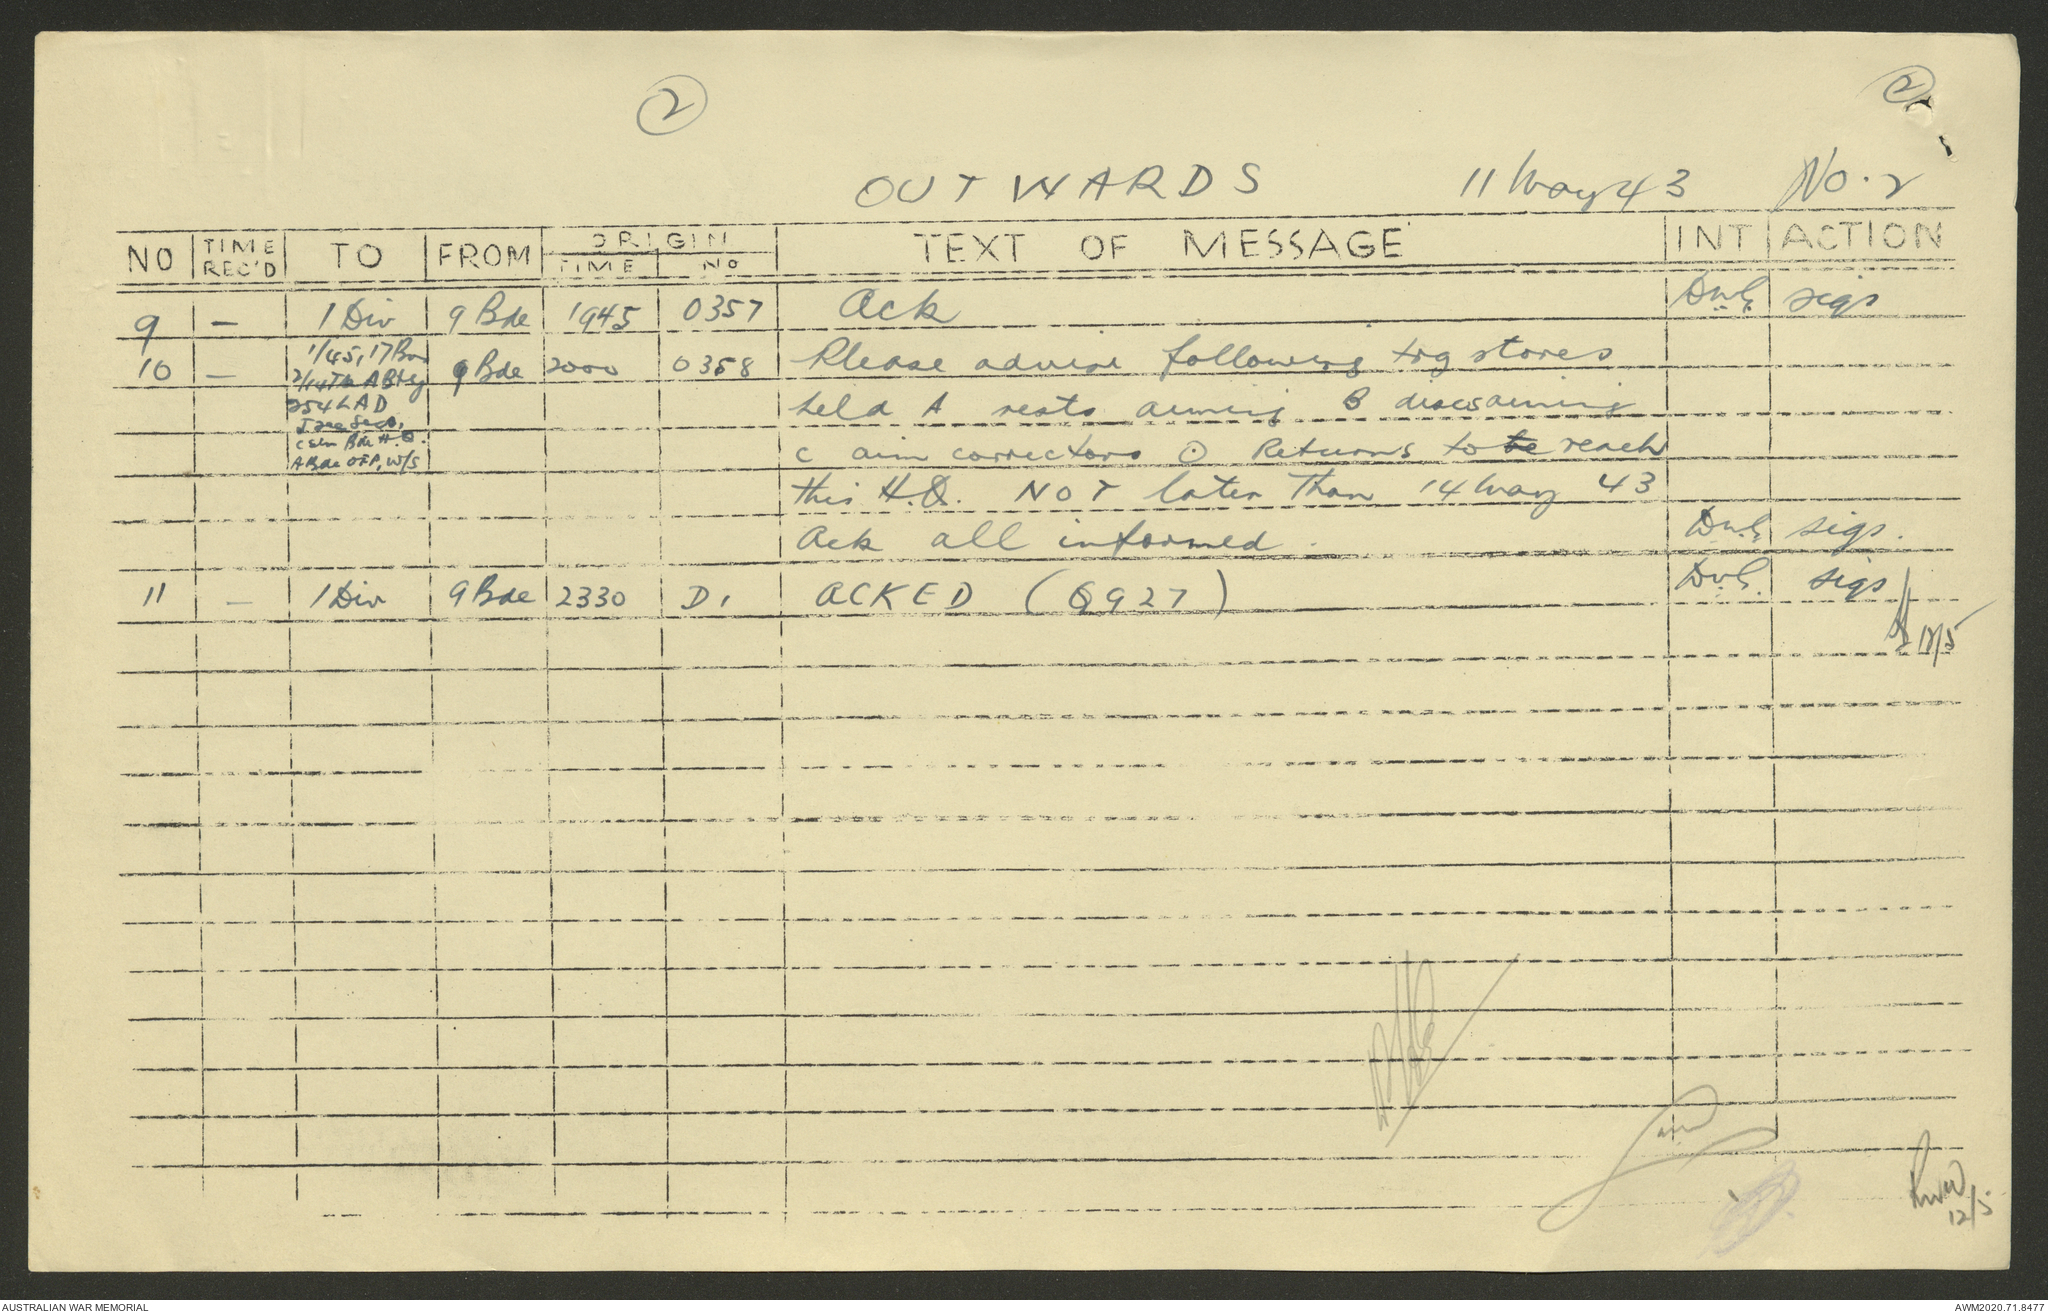 2
2
OUTWARDS 11 May 43 No. 2
NO TIME REC'D TO FROM ORIGIN TIME NO TEXT OF MESSAGE INT ACTION
9 — 1 Div 9 Bde 1945 0357 Ack sigs
10 — 1/45, 17 Bns 9 Bde 2000 0358 Please advise following trg stores
2/14
254 LAD held A rests aiming B discs aiming
Bde H.Q. C aim correctors ⊙ Returns to be reach
A Bde this H.Q. NOT later than 14 May 43
Ack all informed. sigs.
11 — 1 Div 9 Bde 2330 D1 ACKED (Q927) sigs
12/5
12/5
AUSTRALIAN WAR MEMORIAL AWM2020.71.8477